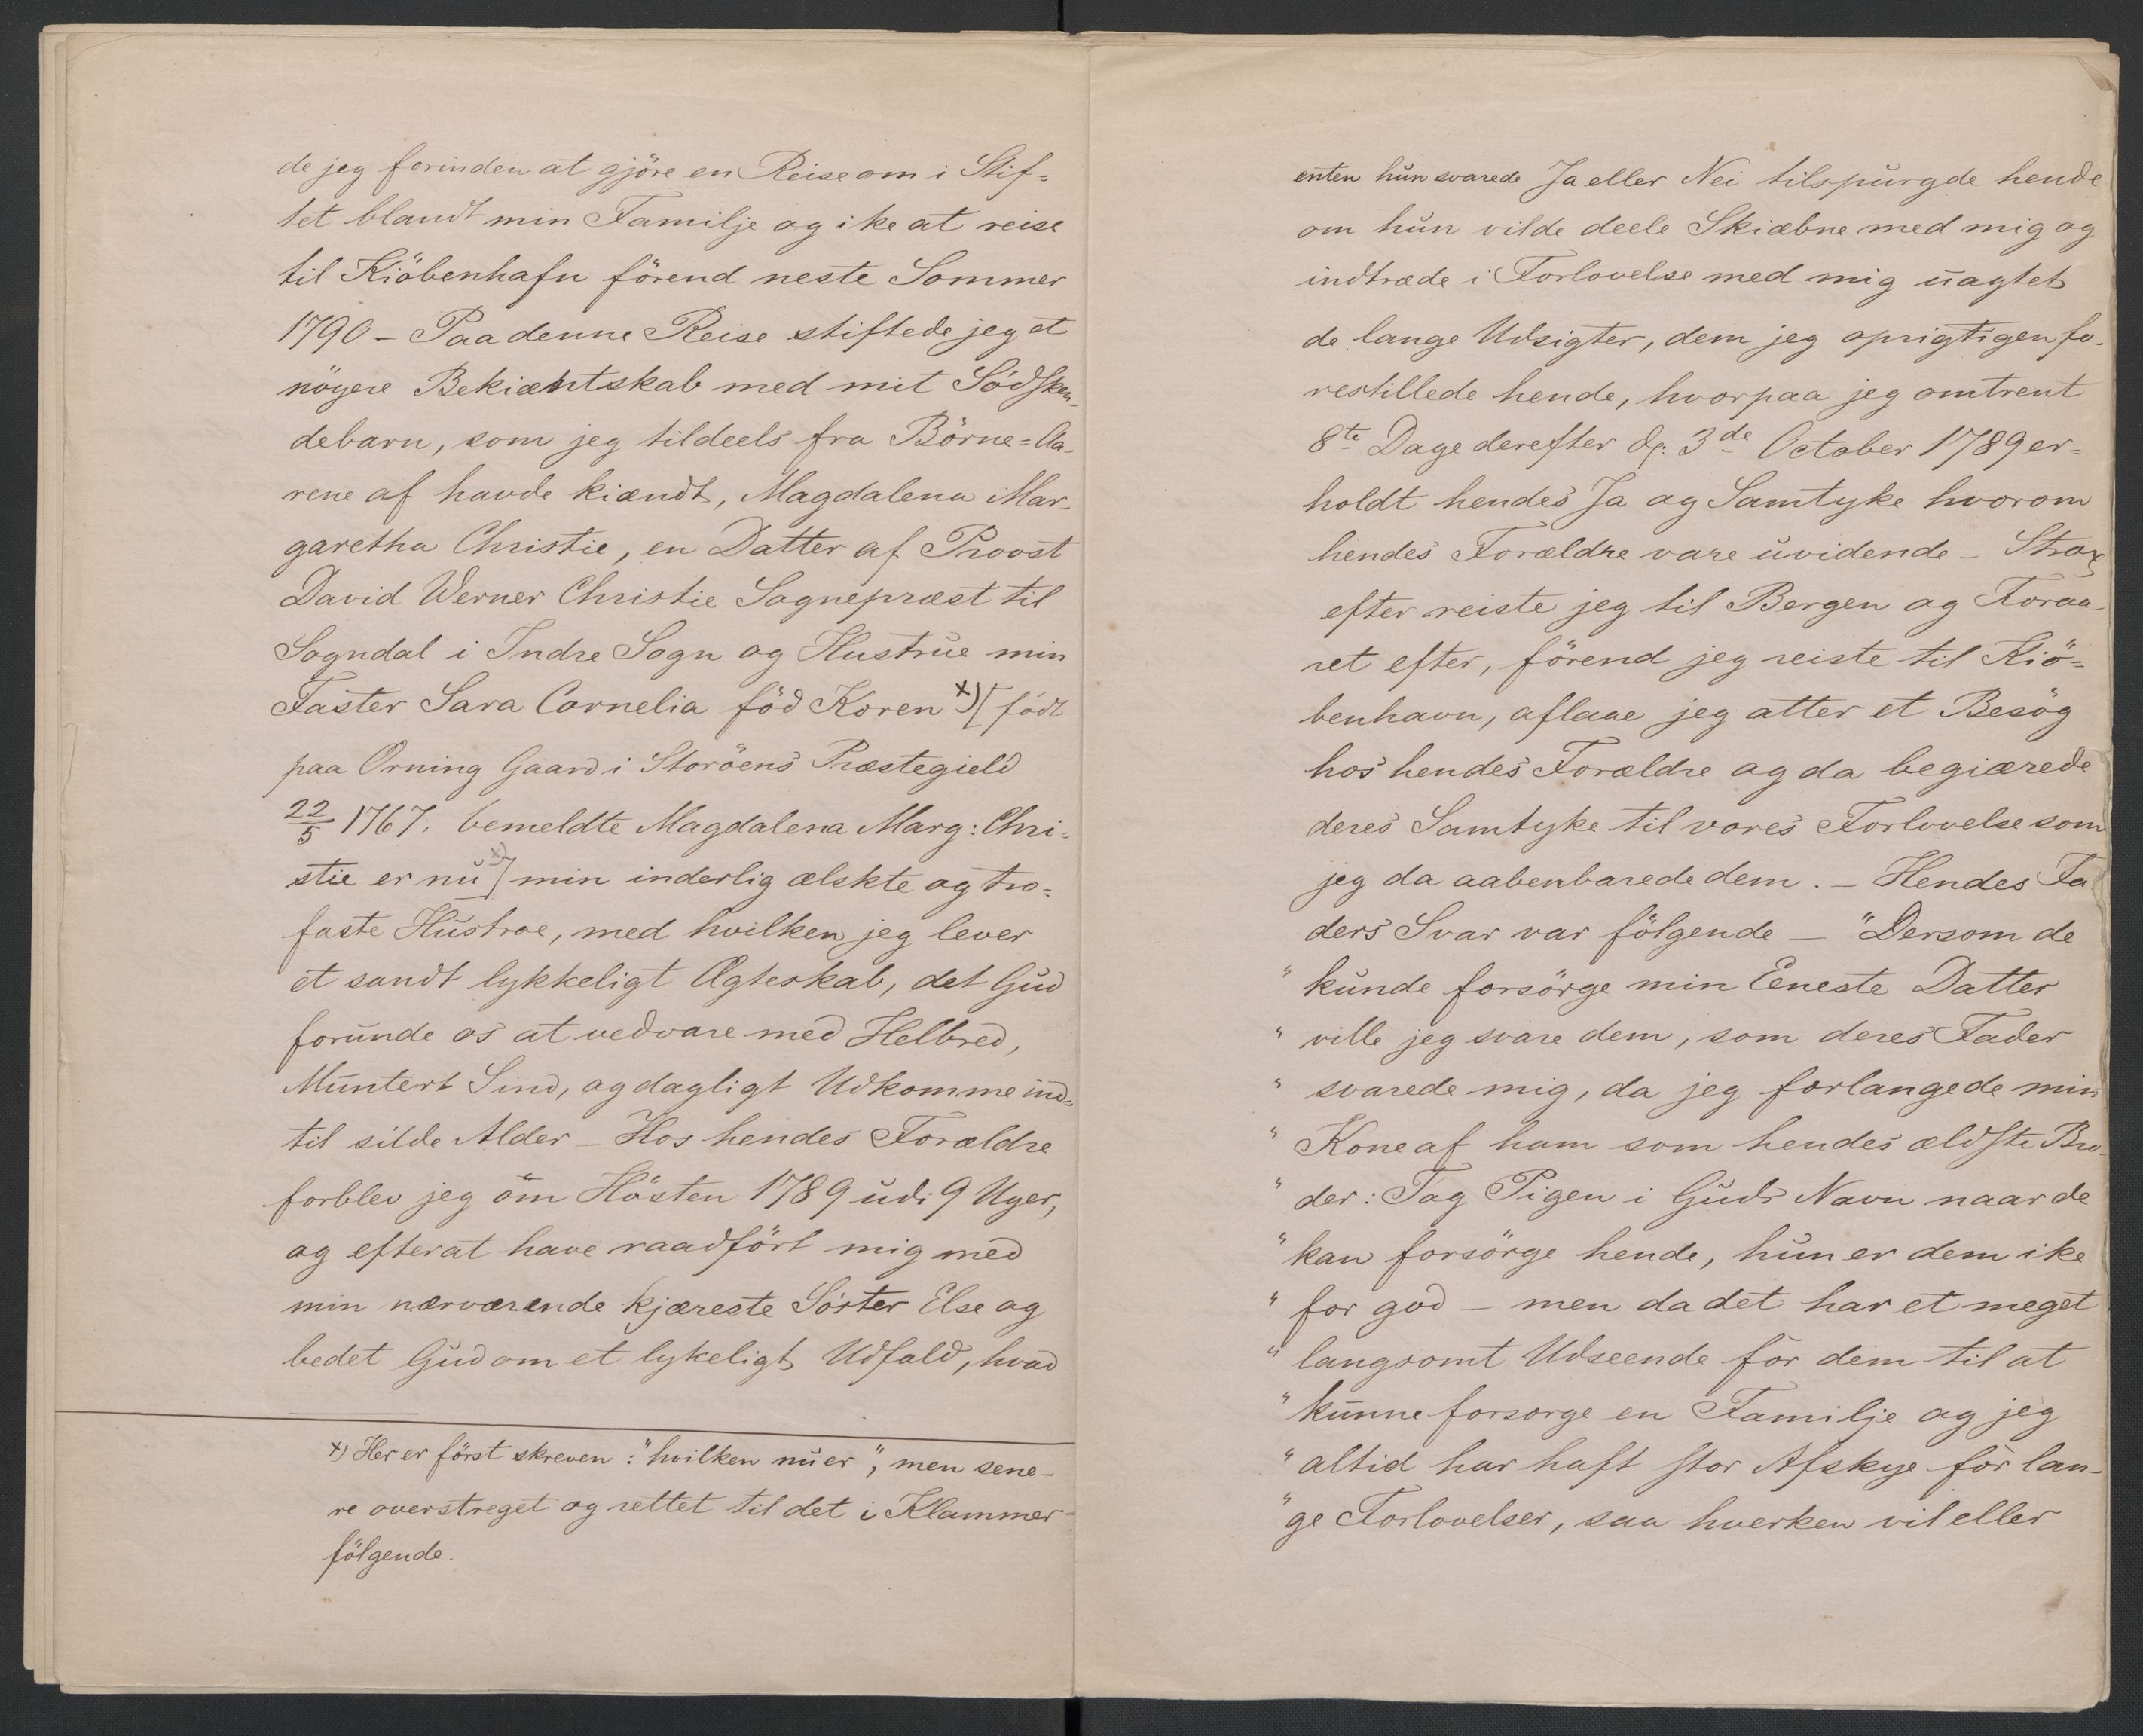 de jeg forinden at gjöre en Reise om i Stif=
tet blandt min Familje og ike at reise
til Kiöbenhafn förend neste Sommer
1790 – Paa denne Reise stiftede jeg et
nögere Bekiæntskab med mit Södsken-
debarn, som jeg tildeels fra Börne=Aa-
rene af havde kiændt, Magdalena Mar-
garetha Christie, en Datter af Provst
David Werner Christie Sognepræst til
Sogndal i Indre Sogn og Hustrue min
Faster Sara Cornelia föd Koren x)[födt
paa Orning Gaard i Storöens Præstegield
22/5 1767. bemeldte Magdalena Marg: Chri=
stie er nu x)] min inderlig ælskte og tro=
faste Hustroe, med hvilken jeg lever
et sandt lykkeligt Ægteskab, det Gud
forunde os at vedvare med Helbred,
Muntert Sind, og dagligt Udkomme ind=
til silde Alder – Hos hendes Forældre
forblev jeg om Hösten 1789 udi 9 Uger,
og efterat have raadfört mig med
min nærværende kjæreste Söster Else og
bedet Gud om et lykeligt Udfald, hvad
x) Her er först skreven: "hvilken nu er", men sene-
re overstreget og rettet til det i Klammer
fölgende.
enten hun svarede Ja eller Nei tilspurgde hende
om hun vilde deele Skiæbne med mig og
indtræde i Forlovelse med mig uagtet
de lange Udsigter, dem jeg oprigtigen fo-
restillede hende, hvorpaa jeg omtrent
8te Dage derefter d: 3de October 1789 er=
holdt hendes Ja og Samtyke hvorom
hendes Forældre vare uvidende – Strax
efter reiste jeg til Bergen og Foraa-
ret efter, förend jeg reiste til Kiö=
benhavn, aflaae jeg atter et Besög
hos hendes Forældre og da begiærede
deres Samtyke til vores Forlovelse som
jeg da aabenbarede dem. – Hendes Fa
ders Svar var fölgende – "Dersom de
" kunde forsörge min Eeneste Datter
" ville jeg svare dem, som deres Fader
" svarede mig, da jeg forlangede min
" Kone af ham som hendes ældste Bro-
" der: Tag Pigen i Guds Navn naar de
" kan forsörge hende, hun er dem ike
" for god – men da det har et meget
" langsomt Udseende for dem til at
" kunne forsorge en Familje og jeg
" altid har haft stor Afskye for lan-
" ge Forlovelser, saa hverken vil eller